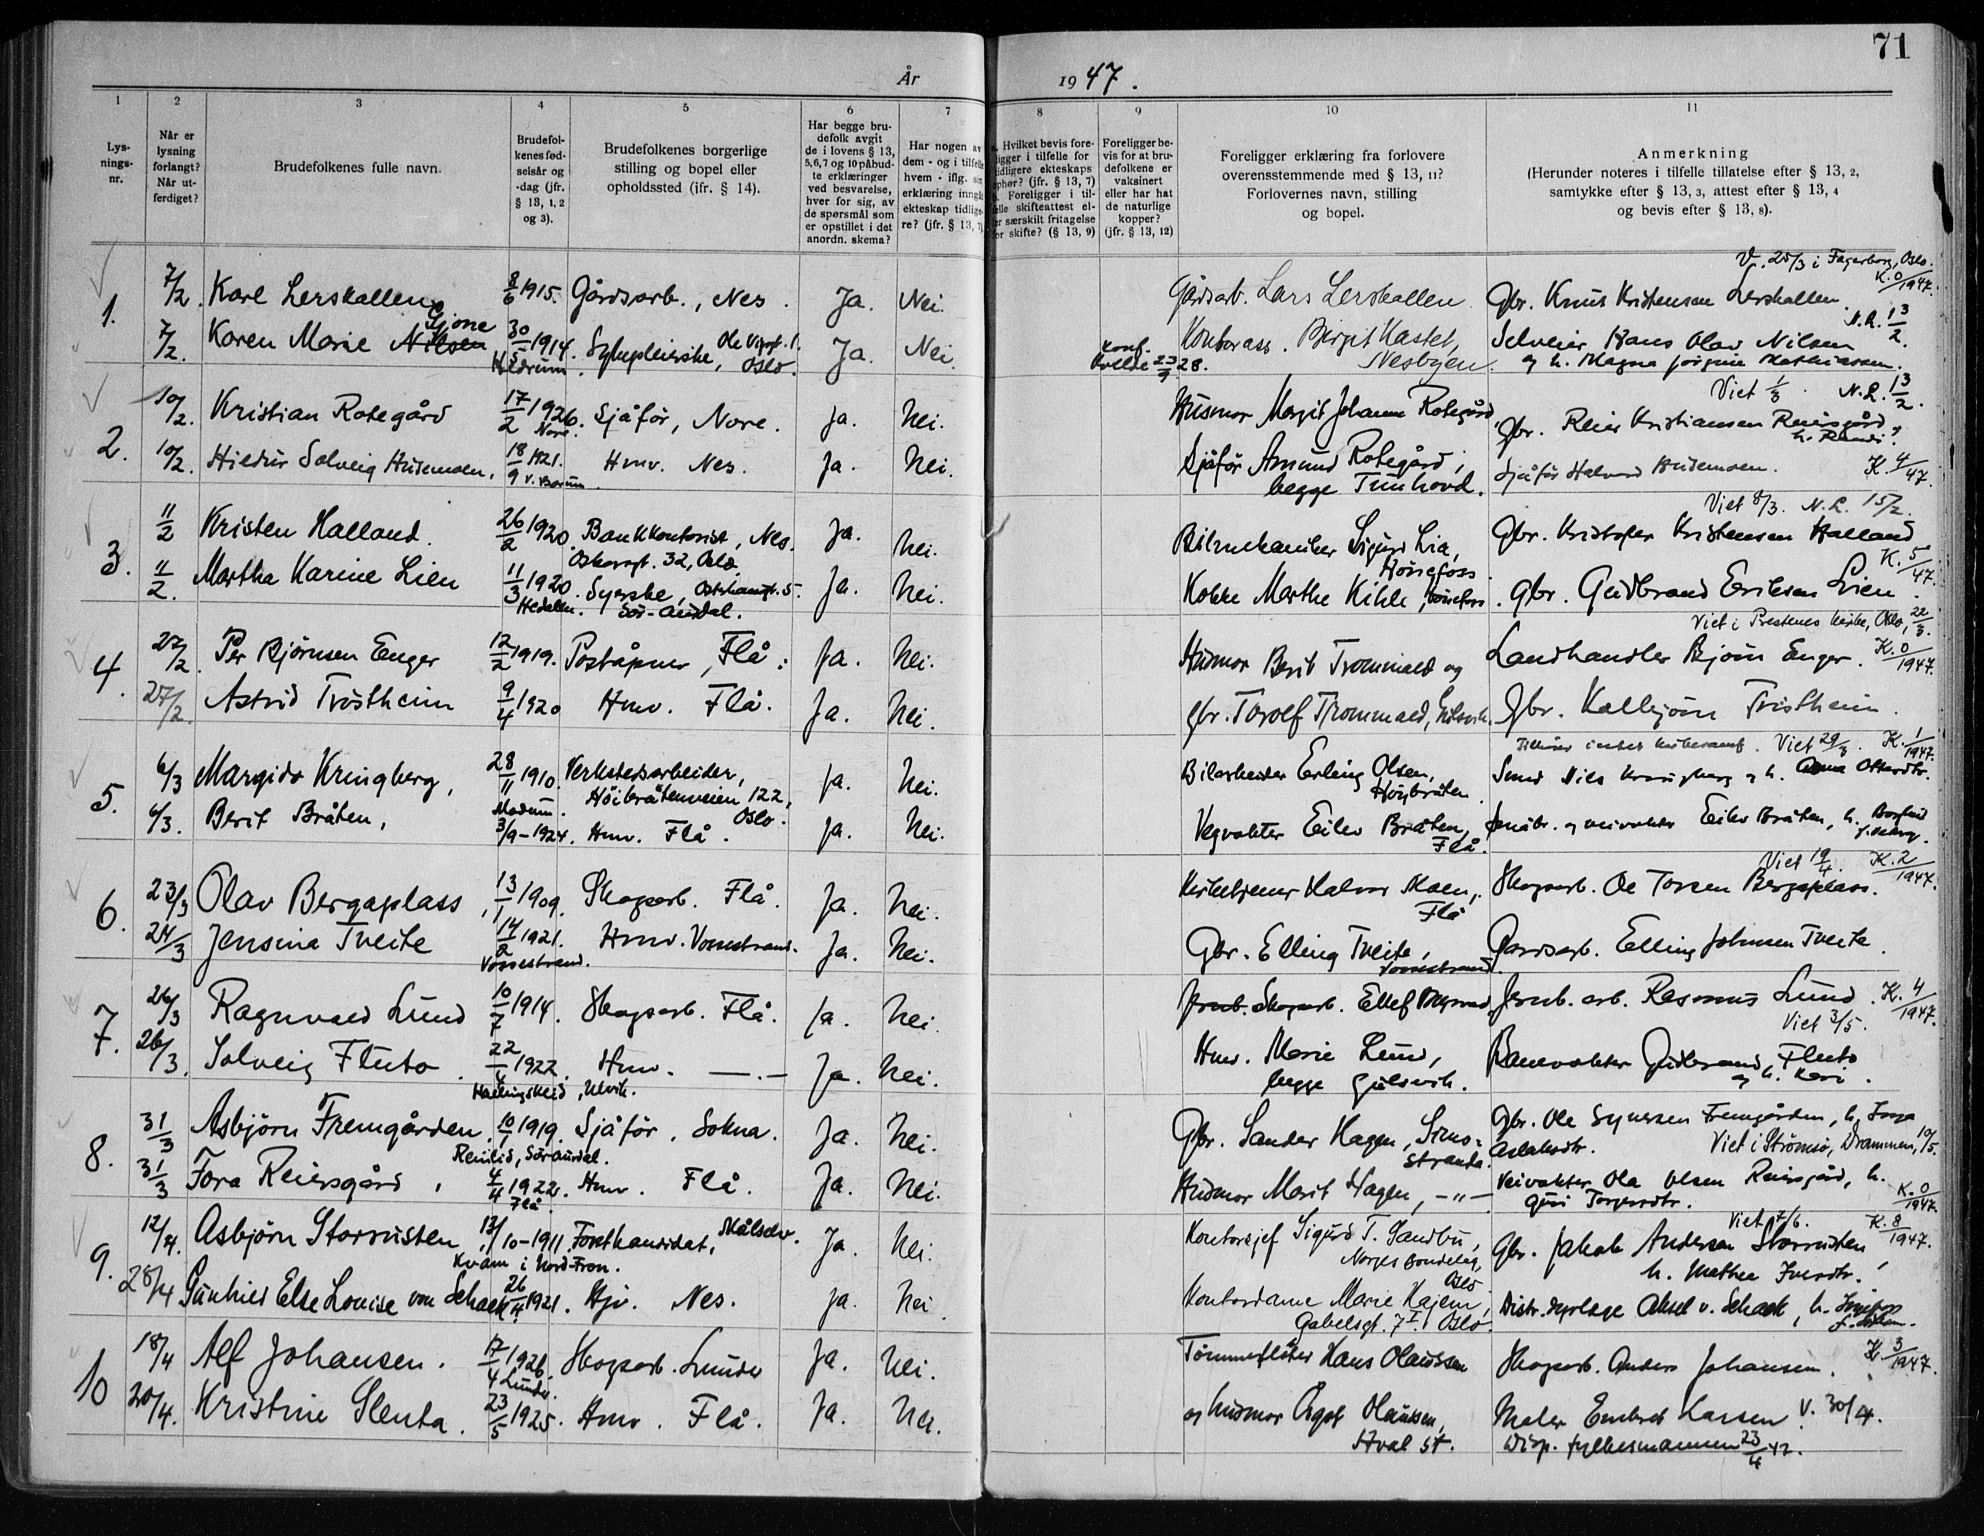 71
År 1947.
1 2 3 4 5 6 7 8 9 10 11
Lysningsnr.
Når er lysning forlangt? Når utferdiget?
Brudefolkenes fulle navn.
Brudefolkenes fødselsår og -dag (jfr. § 13, 1, 2 og 3).
Brudefolkenes borgerlige stilling og bopel eller opholdssted (jfr. § 14).
Har begge brudefolk avgit de i lovens § 13, 5,6,7 og 10 påbudte erklæringer ved besvarelse, hver for sig, av de spørsmål som er opstillet i det anordn. skema?
Har nogen av dem - og i tilfelle hvem - iflg. sin erklæring inngåt ekteskap tidligere? (jfr. § 13, 7)
Hvilket bevis foreligger i tilfelle for tidligere ekteskaps ophør? (jfr. § 13, 7) Foreligger i tilfelle skifteattest eller særskilt fritagelse for skifte? (§ 13, 9)
Foreligger bevis for at brudefolkene er vaksinert eller har hat de naturlige kopper? (jfr. § 13, 12)
Foreligger erklæring fra forlovere overensstemmende med § 13, 11? Forlovernes navn, stilling og bopel.
Anmerkning (Herunder noteres i tilfelle tillatelse efter § 13, 2, samtykke efter § 13, 3, attest efter § 13, 4 og bevis efter § 13, 8).
V. 25/3 i Fagerborg, Oslo. K. 0/1947.
1. 7/2. Karl Lerskallen 8/6 1915. Gårdsarb., Nes. Ja. Nei. Gårdsarb. Lars Lerskallen Gbr. Knut Kristensen Lerskallen
7/2. Karen Marie Nilsen Gjone 30/5 1914. Sykepleierske, Ole Vigsgt. 1. Oslo. Ja. Nei. Konf. 23/9 28. Kontorass. Birgit Hastet, Nesbyen. Selveier Hans Olav Nilsen N.L. 13/2.
Viet 1/3 N.L. 13/2.
2. 10/2. Kristian Rotegård 17/2 1926. Nore. Sjåför, Nore. Ja. Nei. Husmor Margit Johanne Rotegård Gbr. Reier Kristiansen
10/2. Hildur Solveig Husemoen. 18/9 1921. Hmv. Nes. Ja. Nei. Sjåför Amund Rotegård, begge Tunhovd. Sjåför Halvard Husemoen. K. 4/47.
Viet 8/3. N.L. 15/2.
3. 11/2 Kristen Halland. 26/2 1920. Bankkontorist, Nes. Ja. Nei. Bilmekaniker Sigurd Lia, Hönefoss. Gbr. Kristofer Kristensen Halland K. 5/47.
11/2. Martha Karine Lien 11/3 1920. Hedalen. Syerske, Sör-Aurdal. Ja. Nei. Kokke Marthe Kihle, Hönefoss. Gbr. Gudbrand Eriksen Lien.
Viet i Prestenes kirke, Oslo, 22/3.
4. 27/2. Per Bjørnsen Enger 12/2 1919. Poståpner, Flå. Ja. Nei. Husmor Berit Trommald og Landhandler Bjørn Enger. K. 0/1947.
27/2. Astrid Tröstheim 9/4 1920 Hmv. Flå. Ja. Nei. gbr. Torolf Trommald, Gulsvik. Gbr. Kolbjörn Tröstheim.
Viet 29/3. K. 1/1947.
5. 6/3 Margido Kringberg, 28/11 1910. Modum. Verkstedsarbeider, Höibråtenveien 122, Oslo. Ja. Nei. Bilarbeider Erling Olsen, Höybråten. Smed Nils Kringberg
6/3. Berit Bråten, 3/9-1924. Hmv. Flå. Ja. Nei. Vegvokter Eilev Bråten, Flå. Småbr. og veivokter Eilev Bråten, h.
Viet 19/4. K. 2/1947.
6. 23/3 Olav Bergaplass 13/1 1909. Skogsarb. Flå. Ja. Nei. Kirketjener Halvor Moen, Flå Skogsarb. Ole Torsen Bergaplass.
24/3 Jensina Tveite 14/2 1921. Vossestrand. Hmv. Vossestrand. Ja. Nei. Gbr. Elling Tveite, Vossestrand. Gårdsarb. Elling Johnsen Tveite.
7. 26/3 Ragnvald Lund 10/7 1914. Skogsarb. Flå. Ja. Nei. Skogsarb. Ellef Jernb. arb. Rasmus Lund. K. 4/1947. Viet 3/5.
26/3. Solveig Fluto 22/4 1922. Hallingskeid, Ulvik. Hmv. —.— Ja. Nei. Hmv. Marie Lund, begge Gulsvik. Banevokter Gudbrand Fluto og h. Kari.
8. 31/3 Asbjörn Fremgården 10/1 1919. Reinlid, Söraurdal. Sjåför. Sokna. Ja. Nei. Gbr. Sander Hagen, Simostranda. Gbr. Ole Syversen Fremgården, h. Inga Aslaksdtr. Viet i Strömsö, Drammen, 10/5.
31/3 Tora Reiersgård, 4/4 1922. Flå. Hmv. Flå. Ja. Nei. Husmor Marit Hagen, —"— Veivokter Ola Olsen Reiersgård, h. Guri K. 0/1947
Viet 7/6. K. 8/1947.
9. 12/4. Asbjörn Storrusten, 13/10-1911. Kvam i Nord-Fron. Forstkandidat, Målselv. Ja. Nei. Kontorsjef Sigurd T. Sandbu, Norges Bondelag, Oslo Gbr. Jakob Andersen Storrusten, h. Mathea Iversdtr.
28/4 Gunhild Else Louise von Schack 26/4 1921. Hjv. Nes. Ja. Nei Kontordame Marie Hajem, Gabelsgt. 7 I, Oslo. Distr. dyrlæge Aksel v. Schack, h.
10 18/4 Alf Johansen. 17/4 1926. Lunder. Skogsarb. Lunder Ja. Nei. Tömmerfløter Hans Olaussen Skogsarb. Anders Johansen. K. 3/1947.
20/4. Kristine Slenta. 23/5 1925. Hmv. Flå. Ja. Nei. og husmor Ågot Olaussen, Hval st. Maler Embret Larsen V. 30/4.
Disp. fylkesmannen 23/4 47.